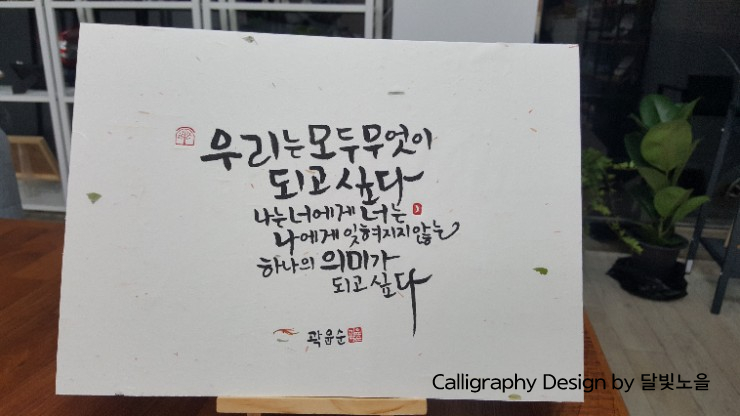 우리는 모두 무엇이
되고 싶다
나는 너에게 너는
나에게 잊혀지지 않는
하나의 의미가
되고 싶다
곽윤순
Calligraphy Design by 달빛노을